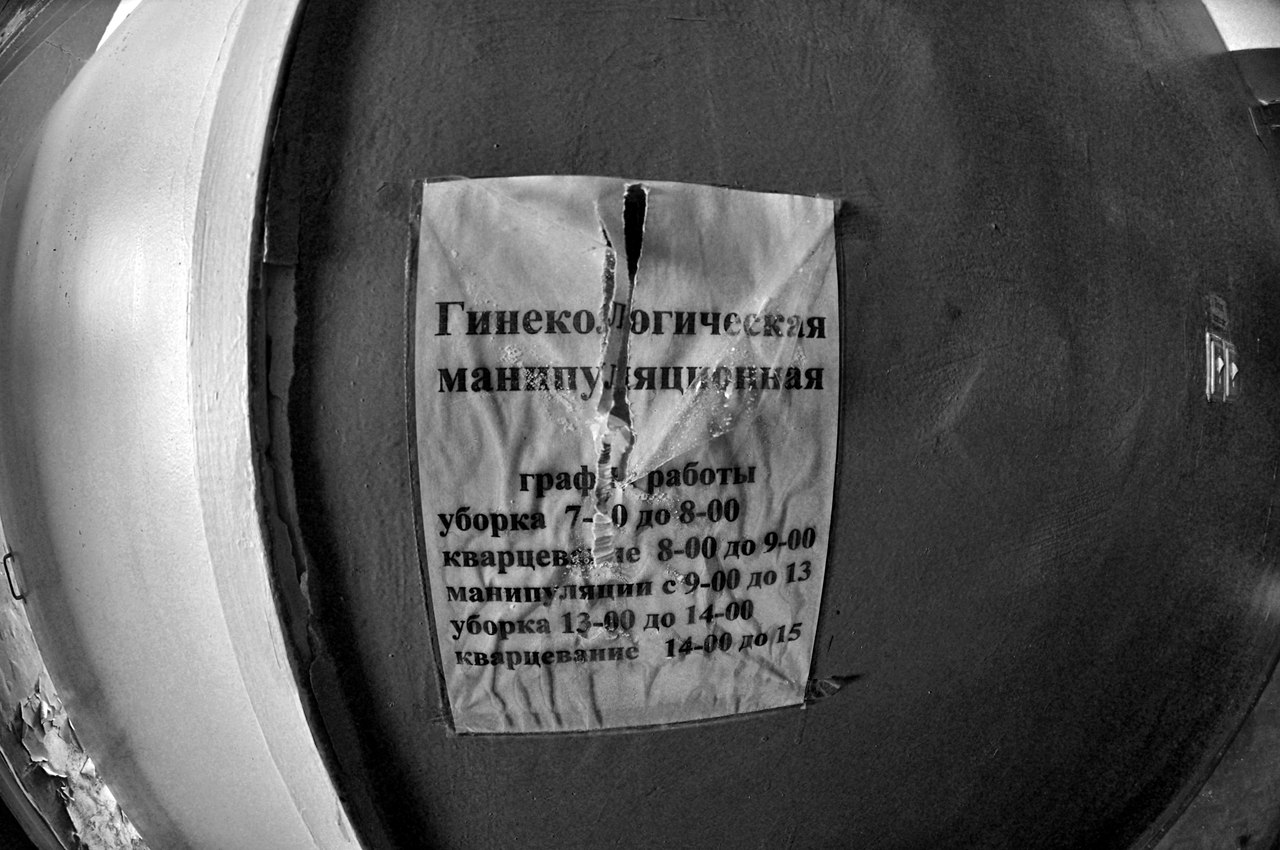 Гинекологическая
манипуляционная
график работы
уборка 7-00 до 8-00
кварцевание 8-00 до 9-00
манипуляции с 9-00 до 13
уборка 13-00 до 14-00
кварцевание 14-00 до 15